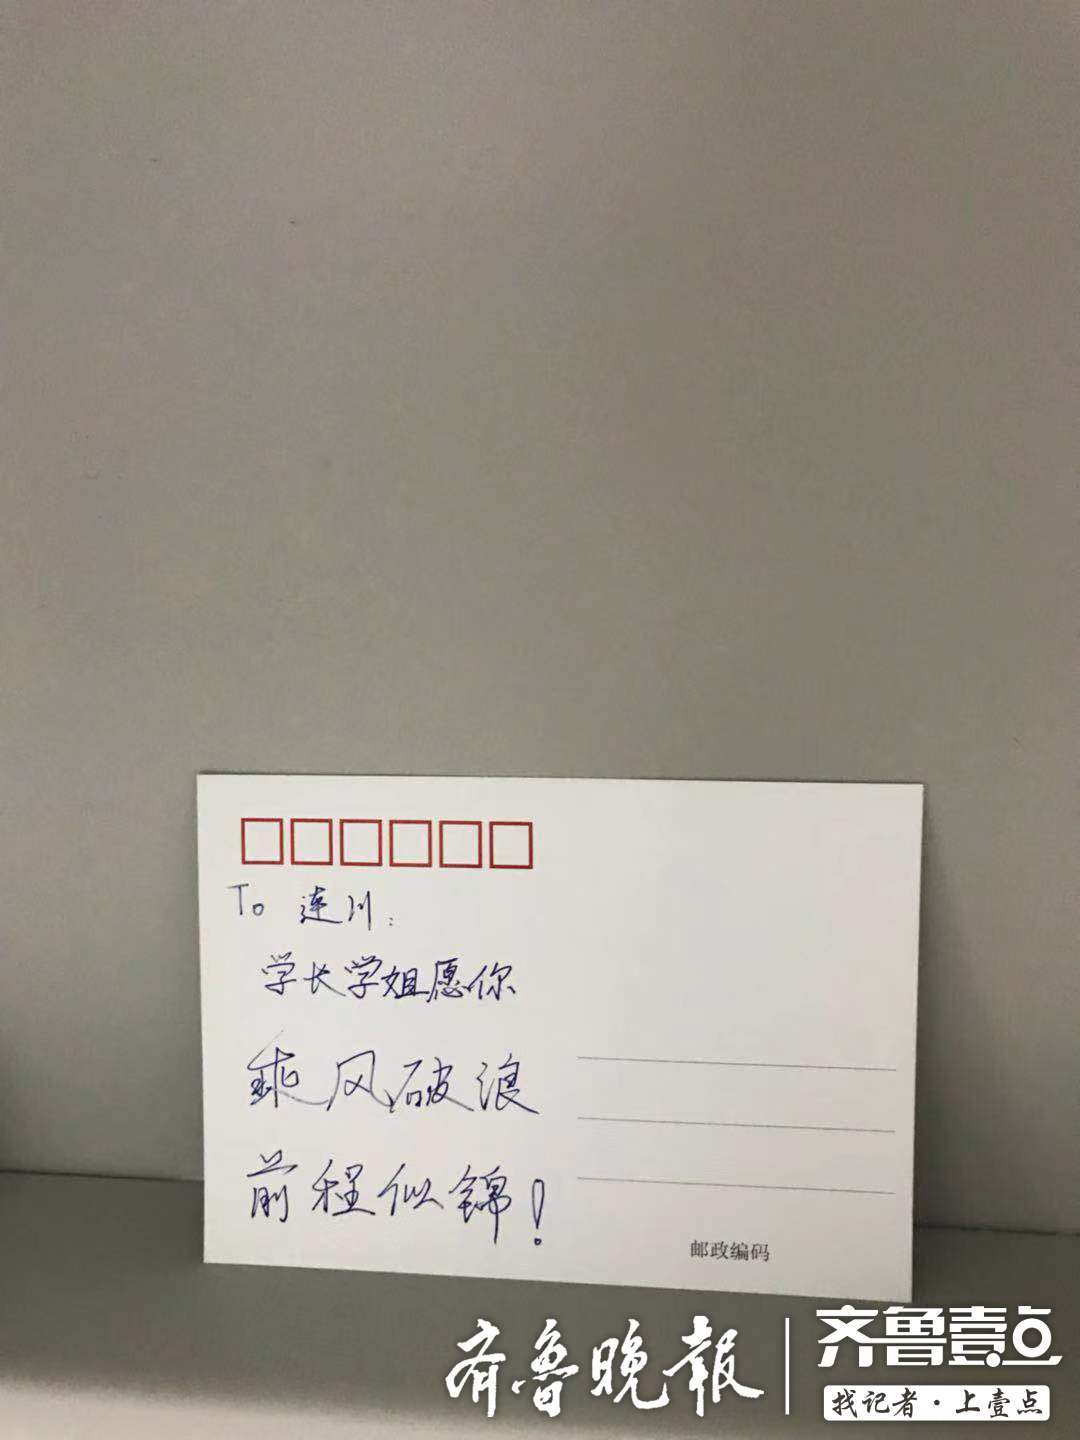 To 连川:
学长学姐愿你
乘风破浪
前程似锦!
邮政编码
齐鲁晚报
齐鲁壹点
找记者·上壹点